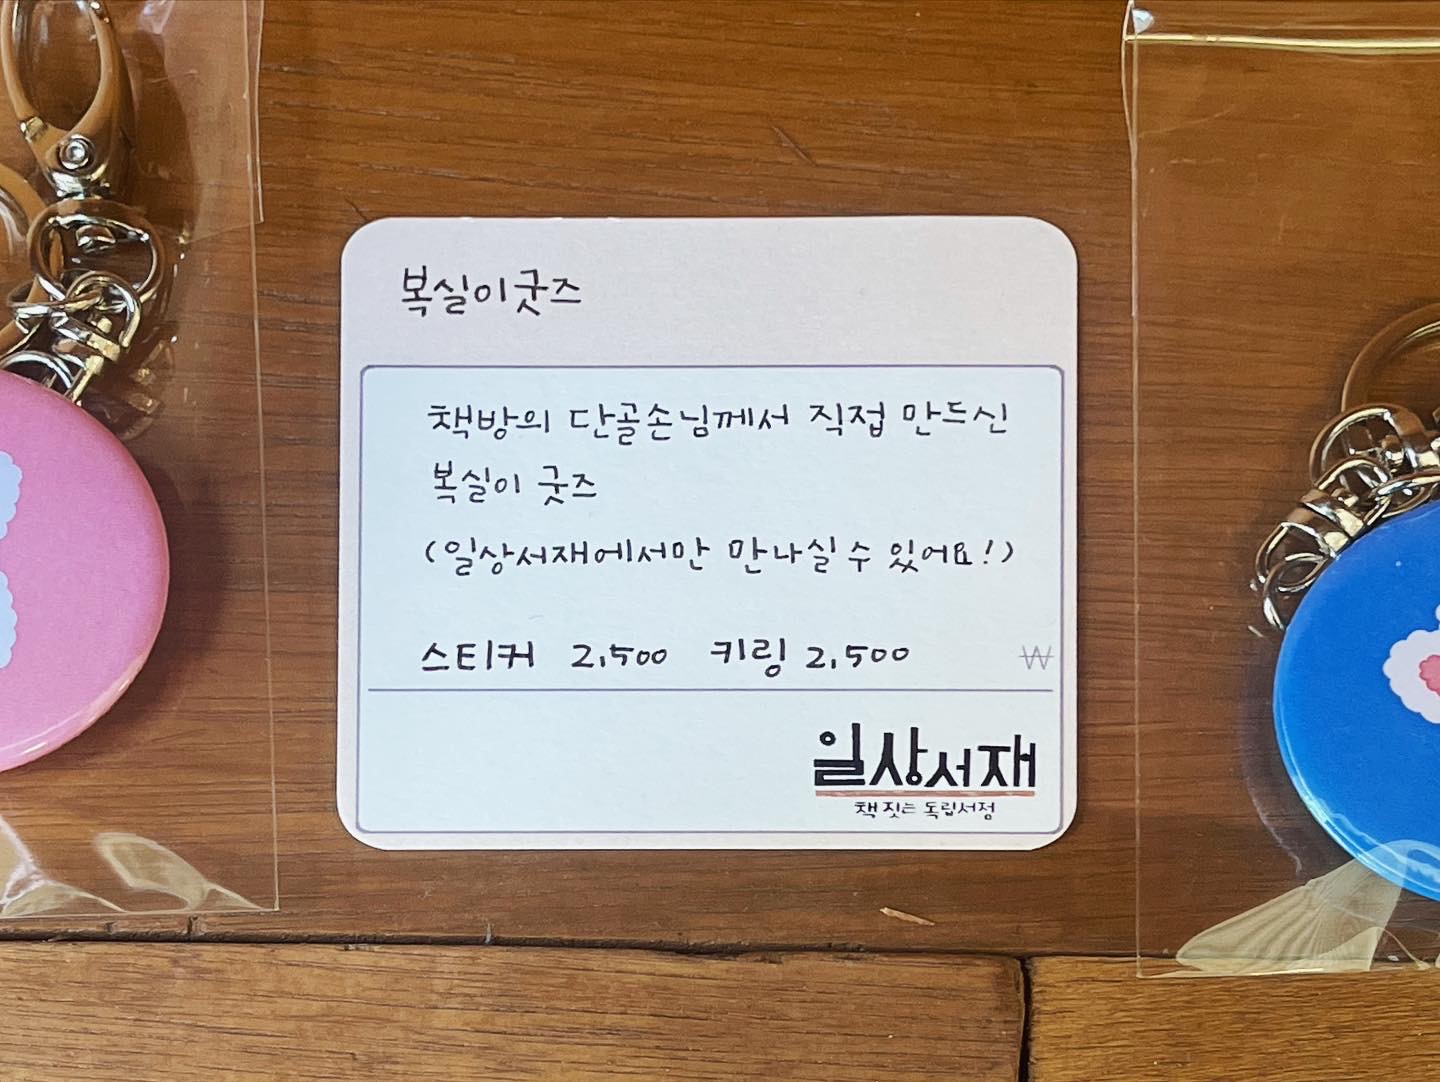 복실이굿즈
책방의 단골손님께서 직접 만드신
복실이 굿즈
(일상서재에서만 만나실 수 있어요!)
스티커 2,500 키링 2,500 ₩
일상서재
책 짓는 독립서점